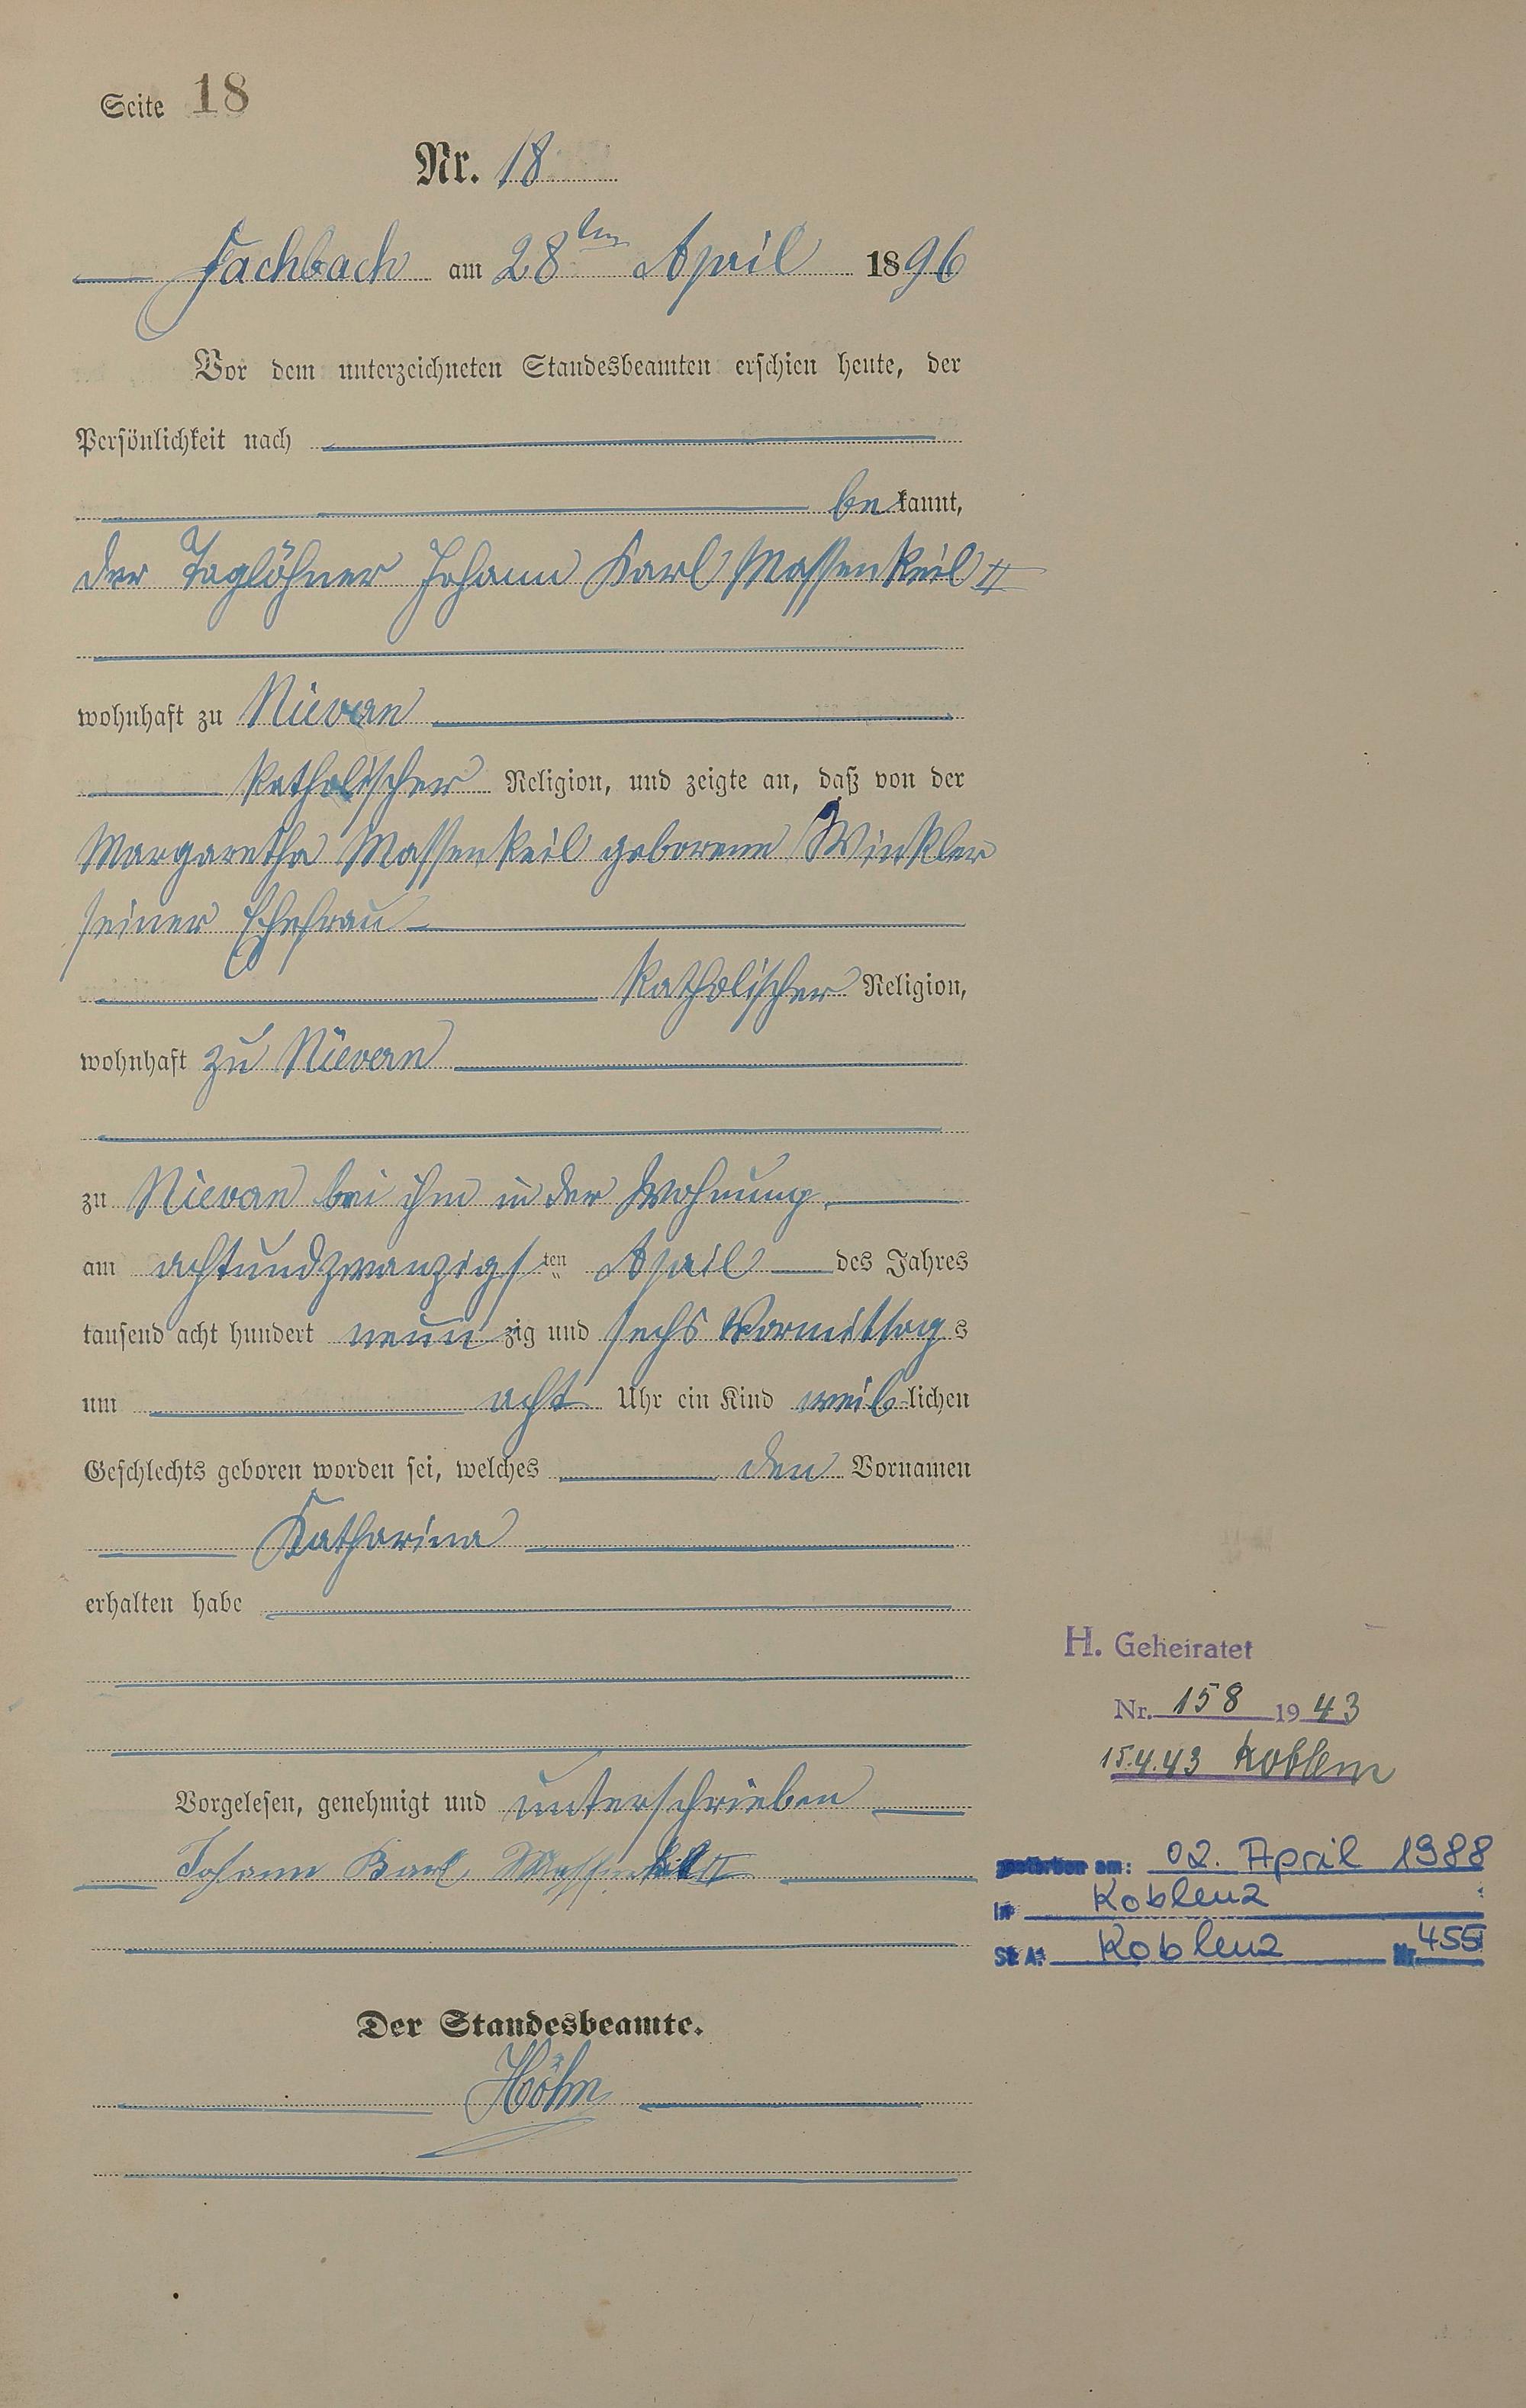 Seite 18
Nr. 18
Fachbach am 28ten April 1896
Vor dem unterzeichneten Standesbeamten erschien heute, der
Persönlichkeit nach
bekannt,
der Taglöhner Johann Karl Massenkeil II
wohnhaft zu Nievern
katholischer Religion, und zeigte an, daß von der
Margaretha Massenkeil geborene Winkler
seiner Ehefrau
katholischer Religion,
wohnhaft zu Nievern
zu Nievern bei ihm in der Wohnung,
am achtundzwanzigsten April des Jahres
tausend acht hundert neunzig und sechs Vormittags
um acht Uhr ein Kind weiblichen
Geschlechts geboren worden sei, welches den Vornamen
Katharina
erhalten habe
Vorgelesen, genehmigt und unterschrieben
Johann Karl Massenkeil II
Der Standesbeamte.
Höhn
H. Geheiratet
Nr. 158 1943
15.4.43 Koblenz
gestorben am: 02. April 1988
in Koblenz
St.A. Koblenz Nr. 455